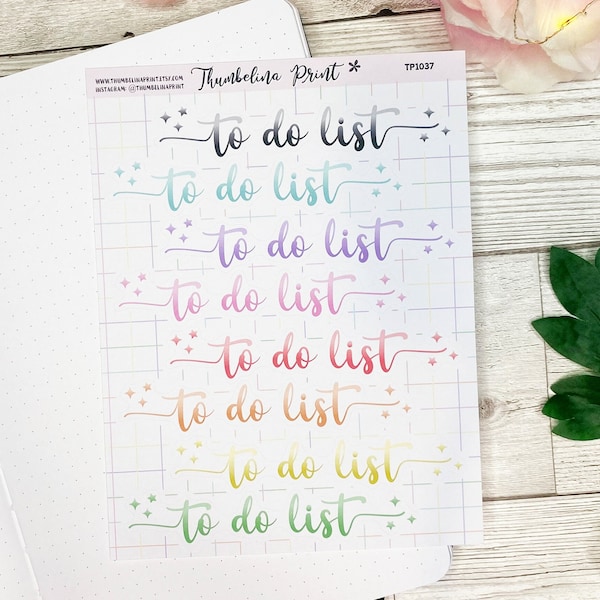 WWW.THUMBELINAPRINT.ETSY.COM
INSTAGRAM: @THUMBELINAPRINT
Thumbelina Print
TP1037
to do list
to do list
to do list
to do list
to do list
to do list
to do list
to do list